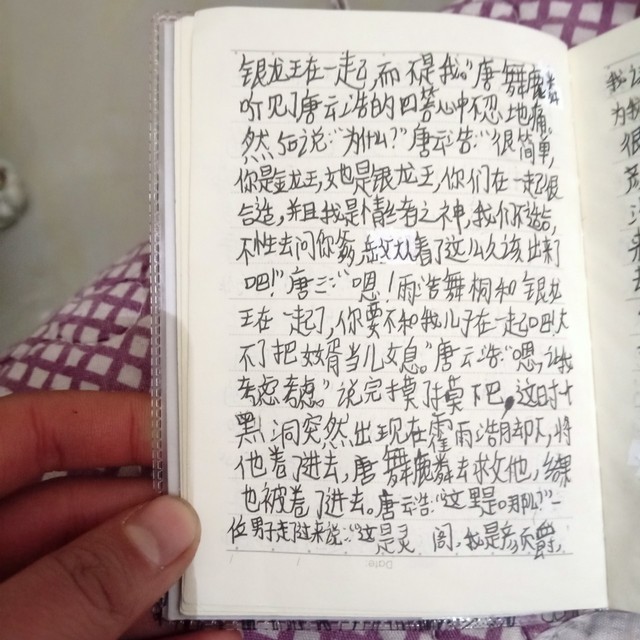 银龙王在一起了,而不是我。"唐舞麟
听见了唐云浩的回答心中不忍地痛,
然后说:"为什么?"唐云浩:"很简单,
你是金龙王,她是银龙王,你们在一起很
合适,并且我是情绪者之神,我们不适合,
不信去问你爹,岳父大人看了这么久该出来了
吧!"唐三:"嗯!雨浩舞桐和银龙
王在一起了,你要不和我儿子在一起吧大
不了把女婿当儿媳。"唐云浩:"嗯,让我
考虑考虑。"说完摸了摸下巴,这时一个
黑洞突然出现在霍雨浩脚下,将
他卷了进去,唐舞麟去救他,结果
也被卷了进去。唐云浩:"这里是哪儿?"一
位男子走过来说:"这是灵 阁,我是
Date: / /
我
为我